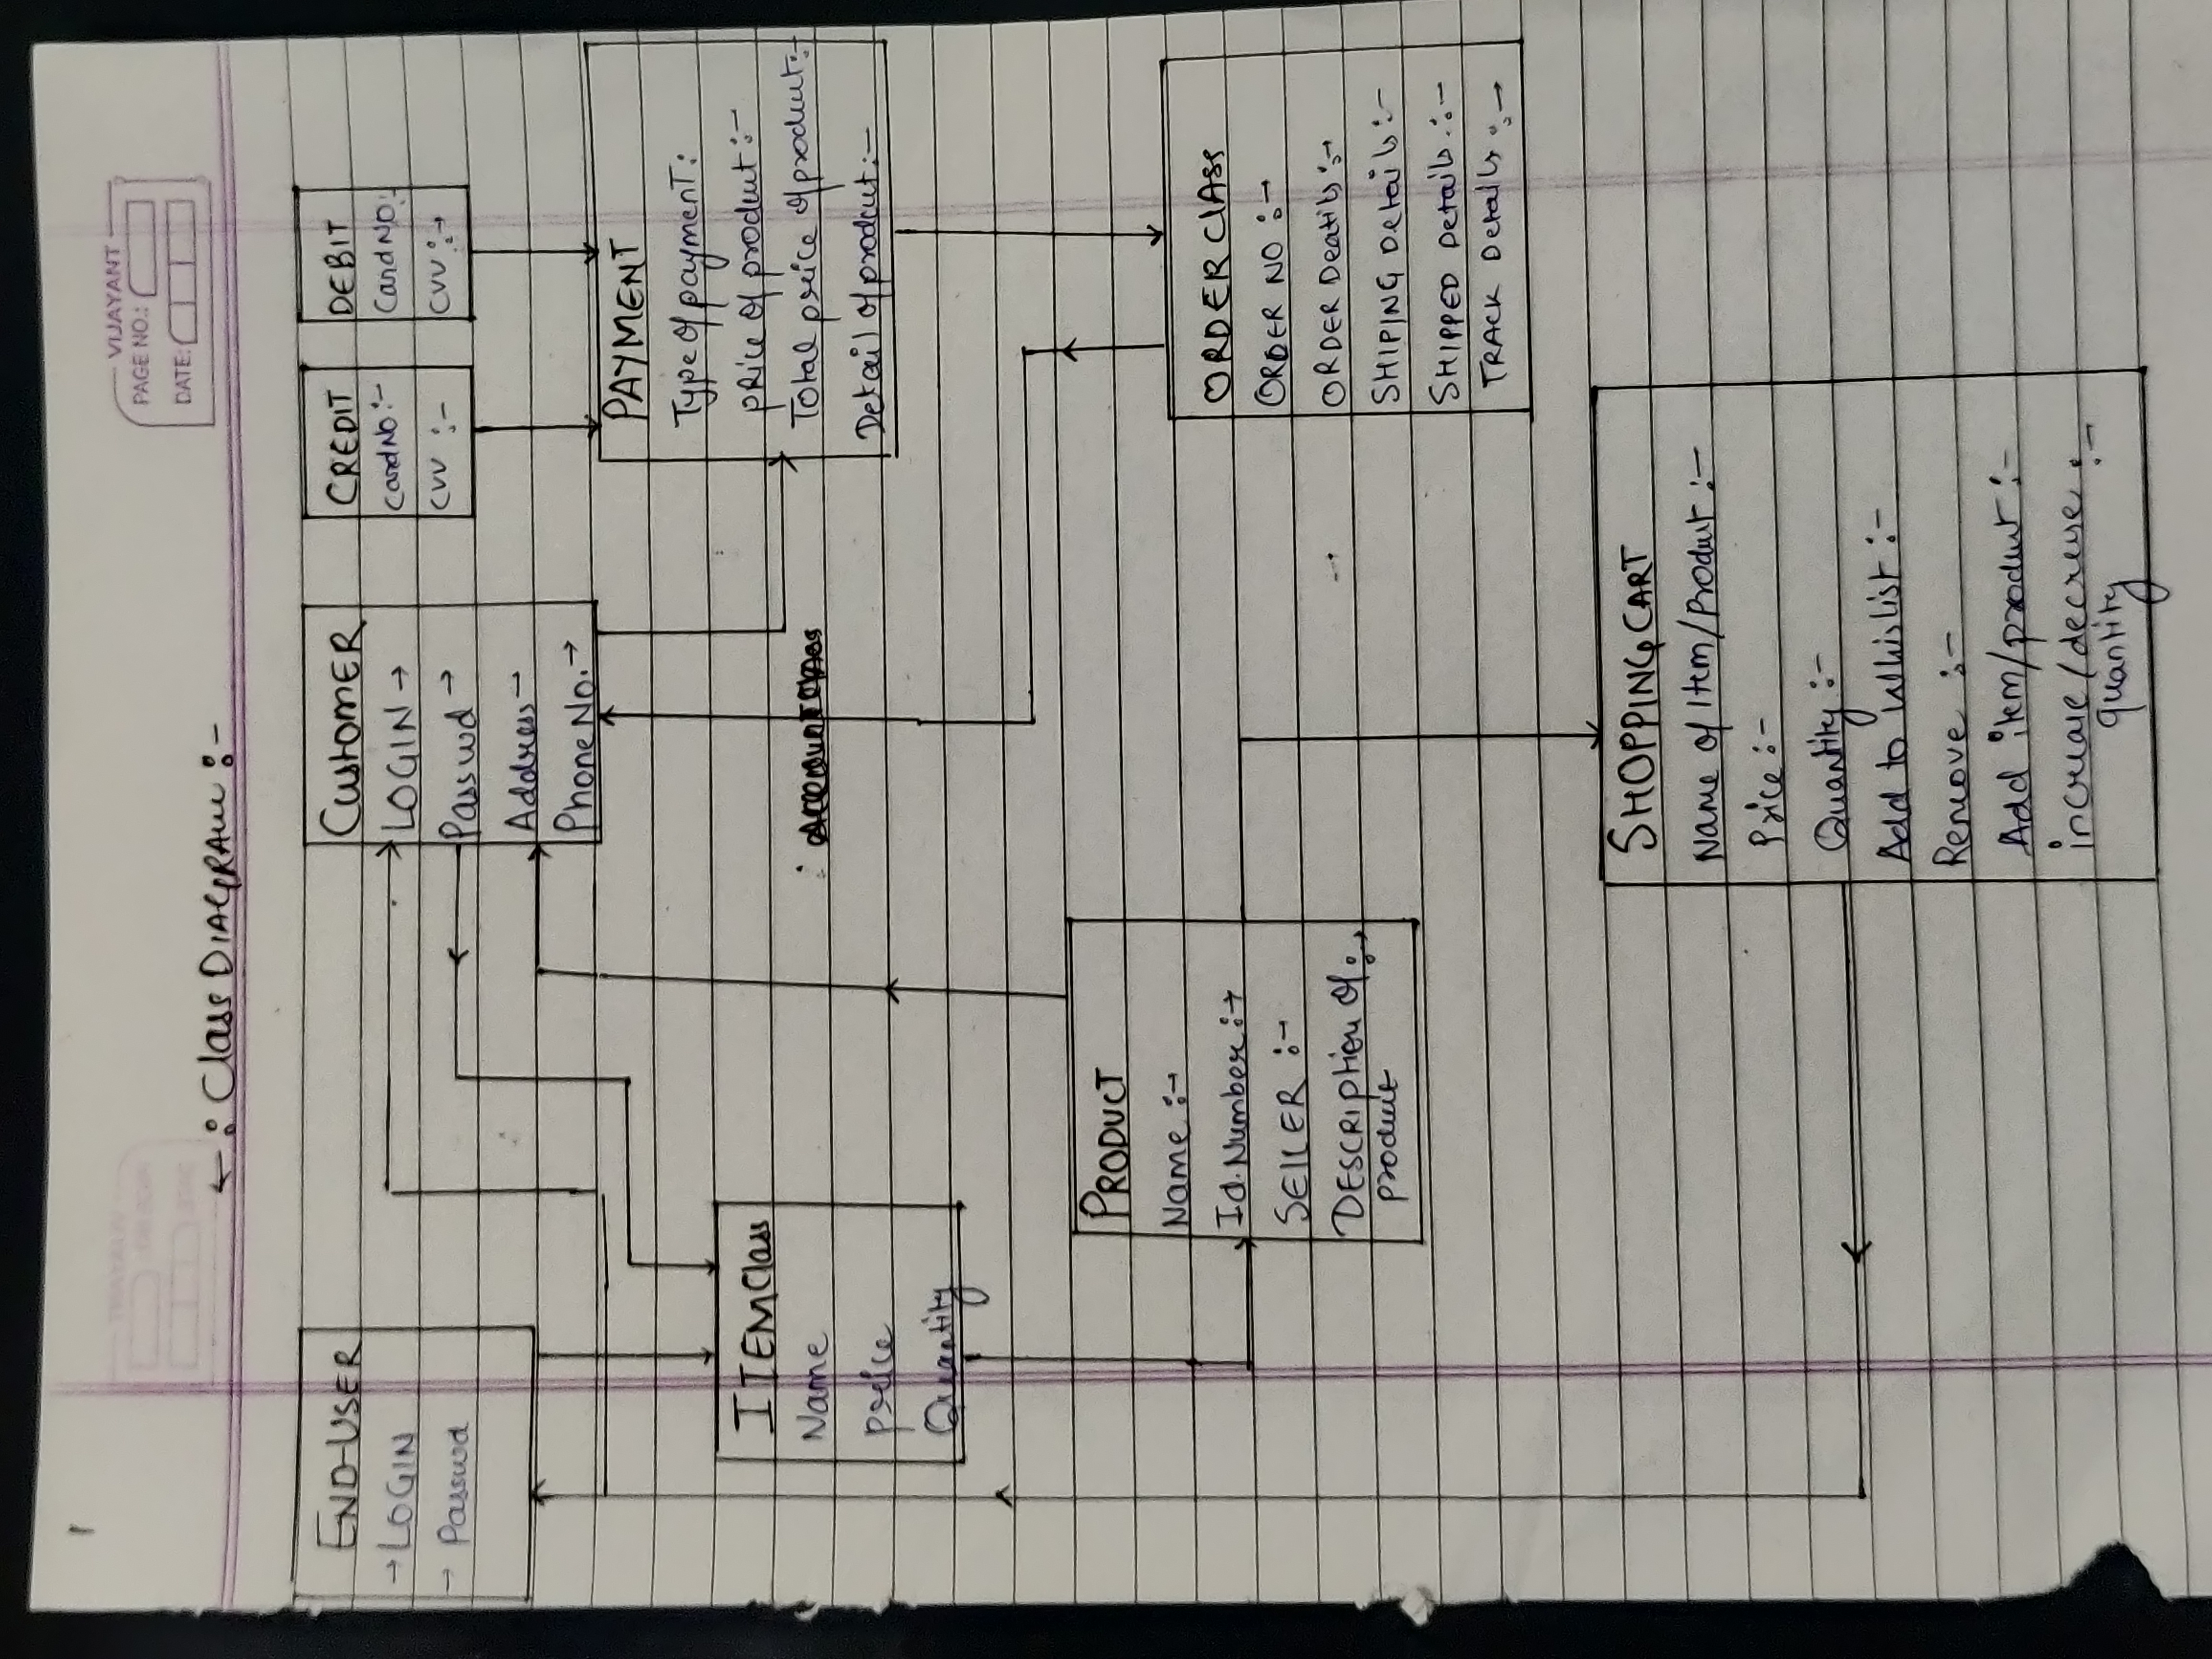 VIJAYANT
PAGE NO.:
DATE:
←: Class DIAGRAM :-
END-USER
→ LOGIN
→ Passwd
CUSTOMER
LOGIN →
Passwd →
Address →
Phone No. →
CREDIT
Card No :-
CVV :-
DEBIT
Card NO :-
CVV :→
PAYMENT
Type of payment :
price of product :-
Total price of product :-
Detail of prodcut :-
ITEM Class
Name
price
Quantity
PRODUCT
Name :→
Id. Number :→
SELLER :→
DESCRIPtion Of :→
product
ORDER ClASS
ORDER NO :→
ORDER Deatils :→
SHIPING Details :-
SHIPPED Details :-
TRACK Details :→
SHOPPING CART
Name of Item/Product :-
Price :-
Quantity :-
Add to Whislist :-
Remove :-
Add item/product :-
increase/decrese :-
quantity